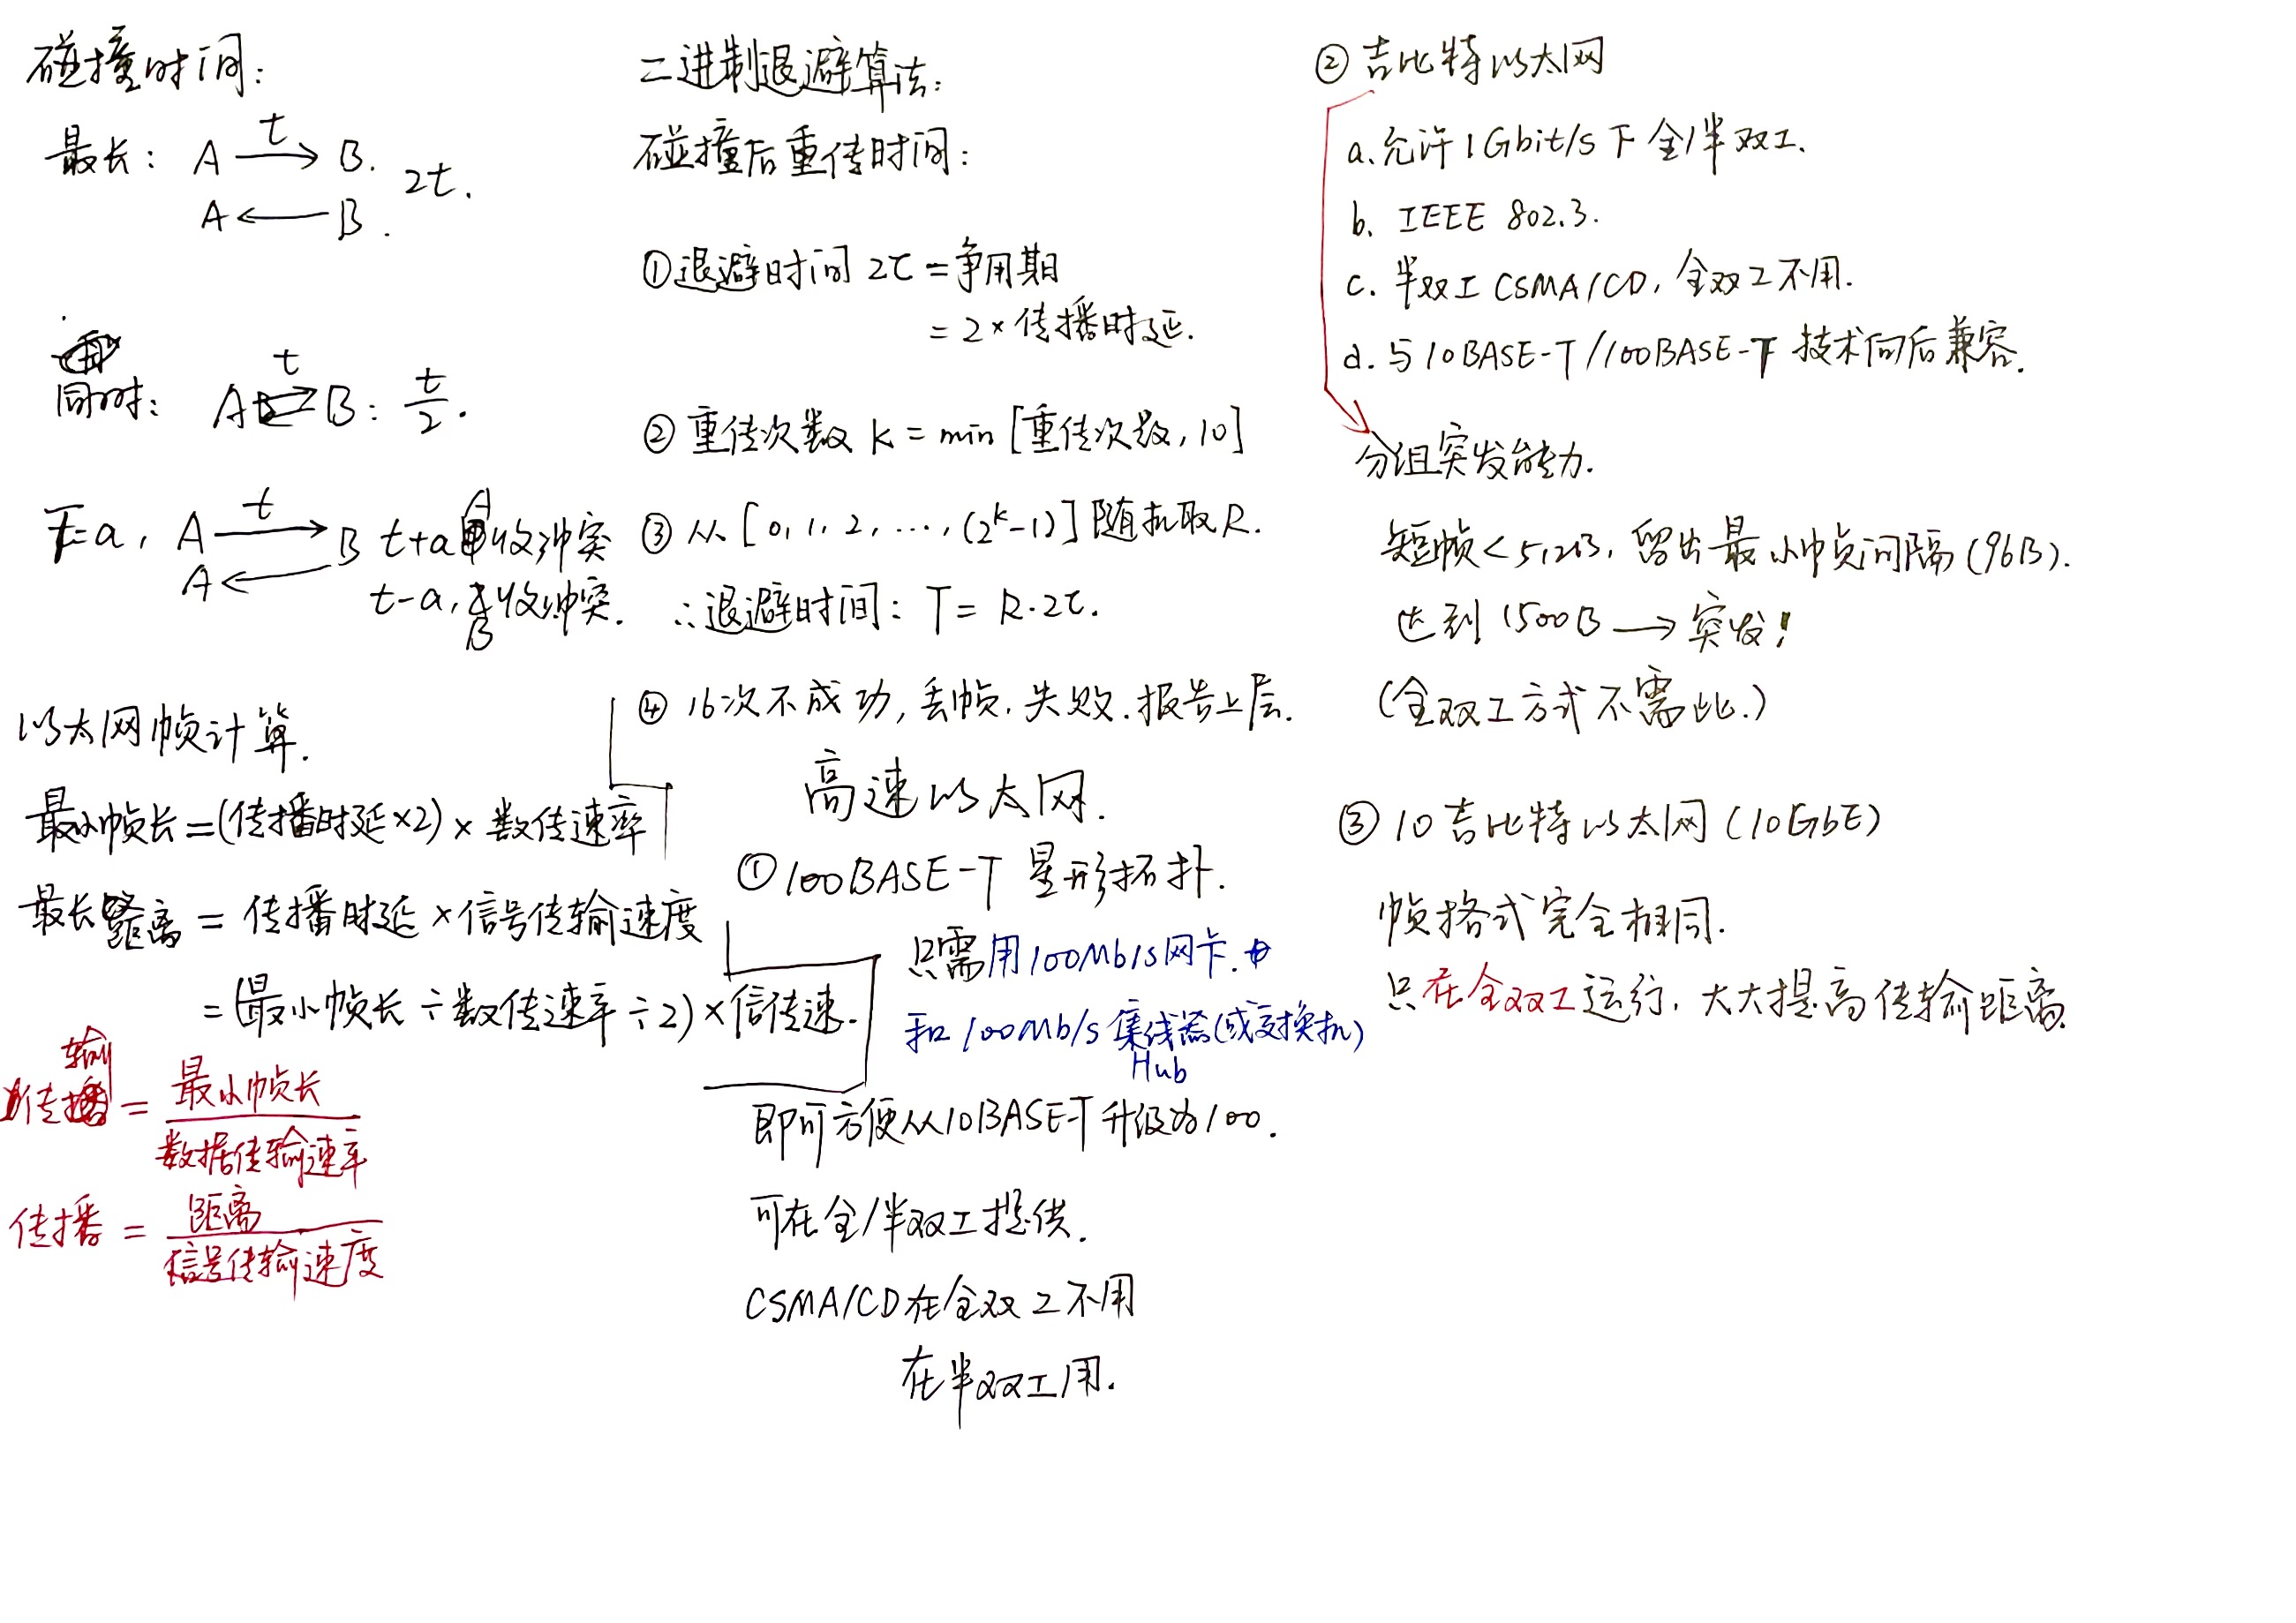 碰撞时间:
最长: A t→ B.
2t.
A ← B.
同时: A t⇄ B: t/2.
T=a, A t→ B t+a A收冲突
A ← t-a, B收冲突.
以太网帧计算.
最小帧长=(传播时延×2)×数传速率
最长距离 = 传播时延×信号传输速度
=(最小帧长÷数传速率÷2)×信传速.
传输 = 最小帧长/数据传输速率
传播 = 距离/信号传输速度
二进制退避算法:
碰撞后重传时间:
①退避时间 2τ = 争用期
= 2×传播时延.
②重传次数 k = min [重传次数, 10]
③ 从 [0, 1, 2, …, (2^k-1)] 随机取R.
∴退避时间: T = R·2τ.
④ 16次不成功, 丢帧. 失败. 报告上层.
高速以太网.
①100BASE-T 星形拓扑.
只需用100Mb/s网卡.
和 100Mb/s 集线器(或交换机)
Hub
即可方便从10BASE-T升级为100.
可在全/半双工提供.
CSMA/CD在全双工不用
在半双工用.
②吉比特以太网
a.允许1Gbit/s下全/半双工.
b. IEEE 802.3.
c. 半双工CSMA/CD, 全双工不用.
d. 与10BASE-T/100BASE-T 技术向后兼容.
分组突发能力.
短帧<512B, 留出最小帧间隔(96B).
达到 1500B → 突发!
(全双工方式不需此.)
③ 10吉比特以太网 (10GbE)
帧格式完全相同.
只在全双工运行, 大大提高传输距离.